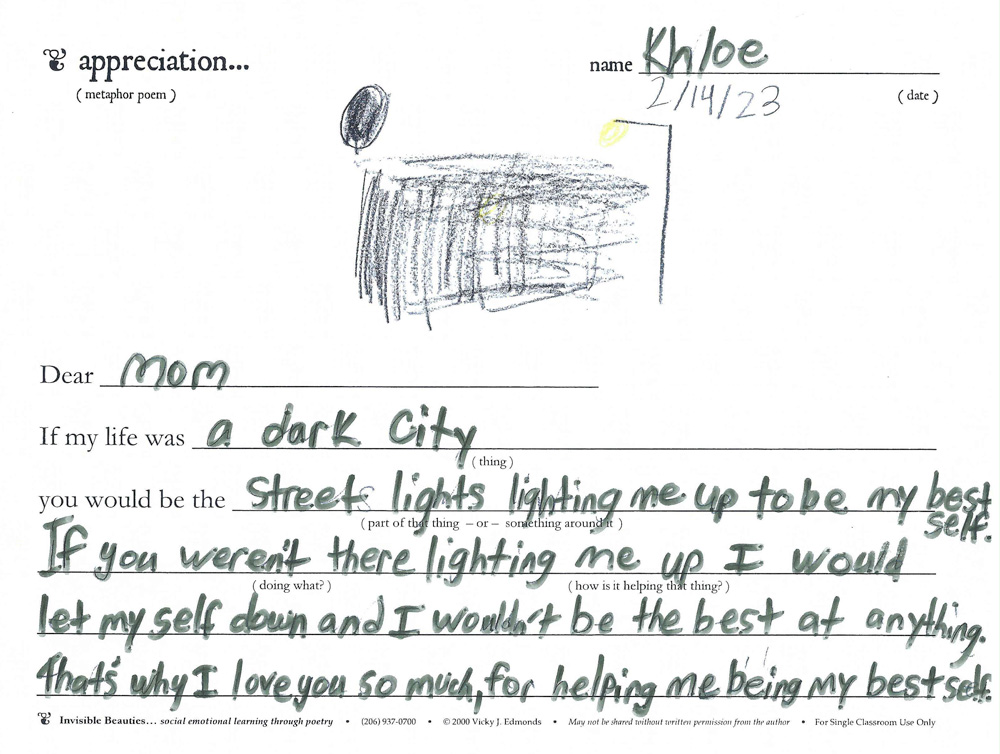 appreciation...
name Khloe
( metaphor poem )
2/14/23
( date )
Dear Mom
If my life was a dark City
( thing )
you would be the Streets lights lighting me up to be my best
self.
( part of that thing – or – something around it )
If you weren't there lighting me up I would
( doing what? ) ( how is it helping that thing? )
let my self down and I wouldn't be the best at anything.
that's why I love you so much, for helping me being my best self.
Invisible Beauties... social emotional learning through poetry • (206) 937-0700 • © 2000 Vicky J. Edmonds • May not be shared without written permission from the author • For Single Classroom Use Only